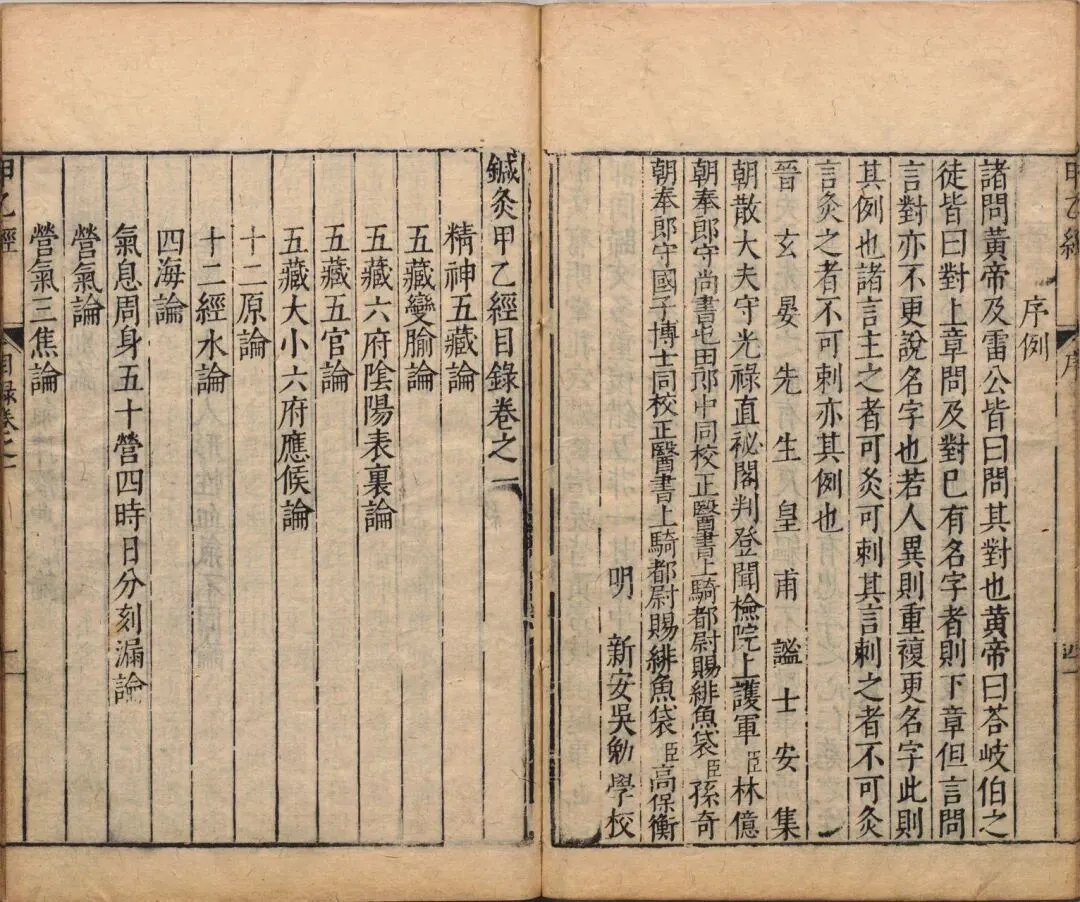 甲乙經 序 四
序例
諸問黃帝及雷公皆曰問其對也黃帝曰荅岐伯之
徒皆曰對上章問及對巳有名字者則下章但言問
言對亦不更說名字也若人異則重複更名字此則
其例也諸言主之者可灸可刺其言刺之者不可灸
言灸之者不可刺亦其例也
晉玄晏先生皇甫謐士安集
朝散大夫守光祿直祕閣判登聞檢院上護軍臣林億
朝奉郎守尚書屯田郎中同校正醫書上騎都尉賜緋魚袋臣孫奇
朝奉郎守國子博士同校正醫書上騎都尉賜緋魚袋臣高保衡
明新安吳勉學校
鍼灸甲乙經目錄卷之一
精神五藏論
五藏變腧論
五藏六府陰陽表裏論
五藏五官論
五藏大小六府應候論
十二原論
十二經水論
四海論
氣息周身五十營四時日分刻漏論
營氣論
營氣三焦論
甲乙經 目錄卷之一 一